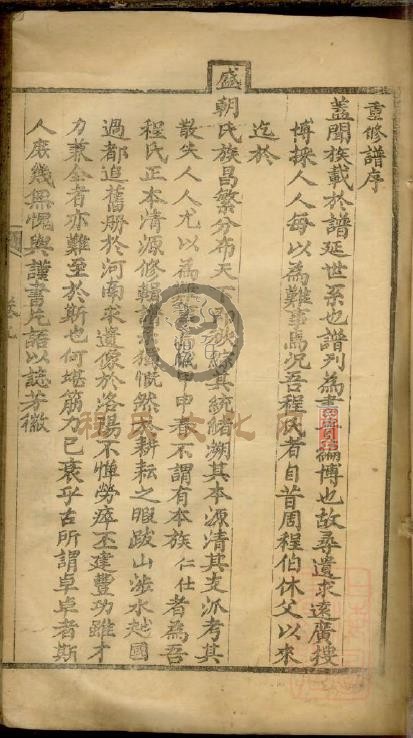 重修譜序
蓋聞族載於譜延世系也譜列為書貴編博也故尋遺求遠廣搜
博採人人每以為難事焉況吾程氏者自昔周程伯休父以來
迄於
盛朝氏族昌繁分布天下 其統緒溯其本源清其支派考其
散失人人尤以為難 申春不謂有本族仁仕者為吾
程氏正本清源修輯譜 慨然於耕耘之暇跋山涉水越國
過都追舊册於河南求遺像於洛陽不憚勞瘁丕建豐功雖才
力兼全者亦難至於斯也何堪筋力已衰乎古所謂卓卓者斯
人庶幾無愧與謹書片語以誌芳徽
程氏文化